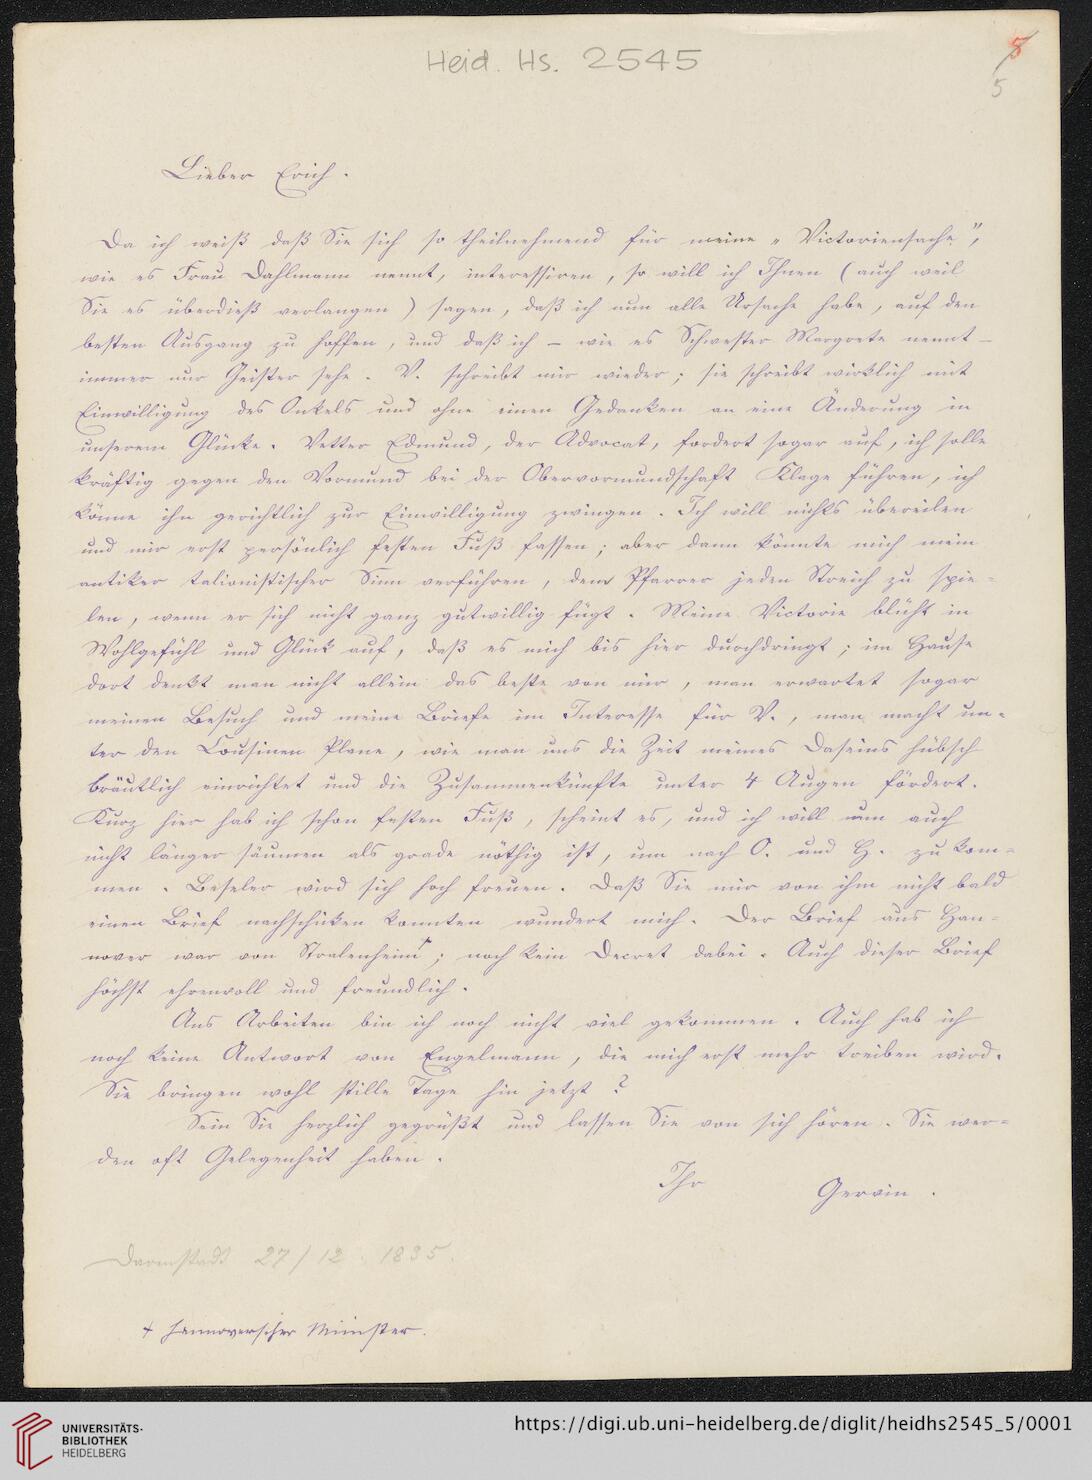 Heid. Hs. 2545
8
5
Lieber Erich.
Da ich weiß daß Sie sich so theilnehmend für meine „Victoriensache",
wie es Frau Dahlmann nennt, interessiren, so will ich Ihnen (auch weil
Sie es überdieß verlangen) sagen, daß ich nun alle Ursache habe, auf den
besten Ausgang zu hoffen, und daß ich – wie es Schwester Margrete nennt –
immer nur Geister sehe. V. schreibt mir wieder; sie schreibt wirklich mit
Einwilligung des Onkels und ohne einen Gedanken an eine Änderung in
unserem Glücke. Vetter Edmund, der Advocat, fordert sogar auf, ich solle
kräftig gegen den Vormund bei der Obervormundschaft Klage führen, ich
könne ihn gerichtlich zur Einwilligung zwingen. Ich will nichts übereilen
und mir erst persönlich festen Fuß fassen; aber dann könnte mich mein
antiker talionistischer Sinn verführen, dem Pfarrer jeden Streich zu spie-
len, wenn er sich nicht ganz gutwillig fügt. Meine Victorie blüht in
Wohlgefühl und Glück auf, daß es mich bis hier durchdringt; im Hause
dort denkt man nicht allein das beste von mir, man erwartet sogar
meinen Besuch und meine Briefe im Interesse für V., man macht un-
ter den Cousinen Plane, wie man uns die Zeit meines Daseins hübsch
bräutlich einrichtet und die Zusammenkünfte unter 4 Augen fördert.
Kurz hier hab ich schon festen Fuß, scheint es, und ich will nun auch
nicht länger säumen als grade nöthig ist, um nach O. und H. zu kom-
men. Beseler wird sich hoch freuen. Daß Sie mir von ihm nicht bald
einen Brief nachschicken konnten wundert mich. Der Brief aus Han-
nover war von Stralenheim+; noch kein Decret dabei. Auch dieser Brief
höchst ehrenvoll und freundlich.
Ans Arbeiten bin ich noch nicht viel gekommen. Auch hab ich
noch keine Antwort von Engelmann, die mich erst mehr treiben wird.
Sie bringen wohl stille Tage hin jetzt?
Sein Sie herzlich gegrüßt und lassen Sie von sich hören. Sie wer-
den oft Gelegenheit haben.
Ihr Gervin.
Darmstadt 27/12. 1835.
+ hannoverscher Minister.
UNIVERSITÄTS-
BIBLIOTHEK
HEIDELBERG
https://digi.ub.uni-heidelberg.de/diglit/heidhs2545_5/0001